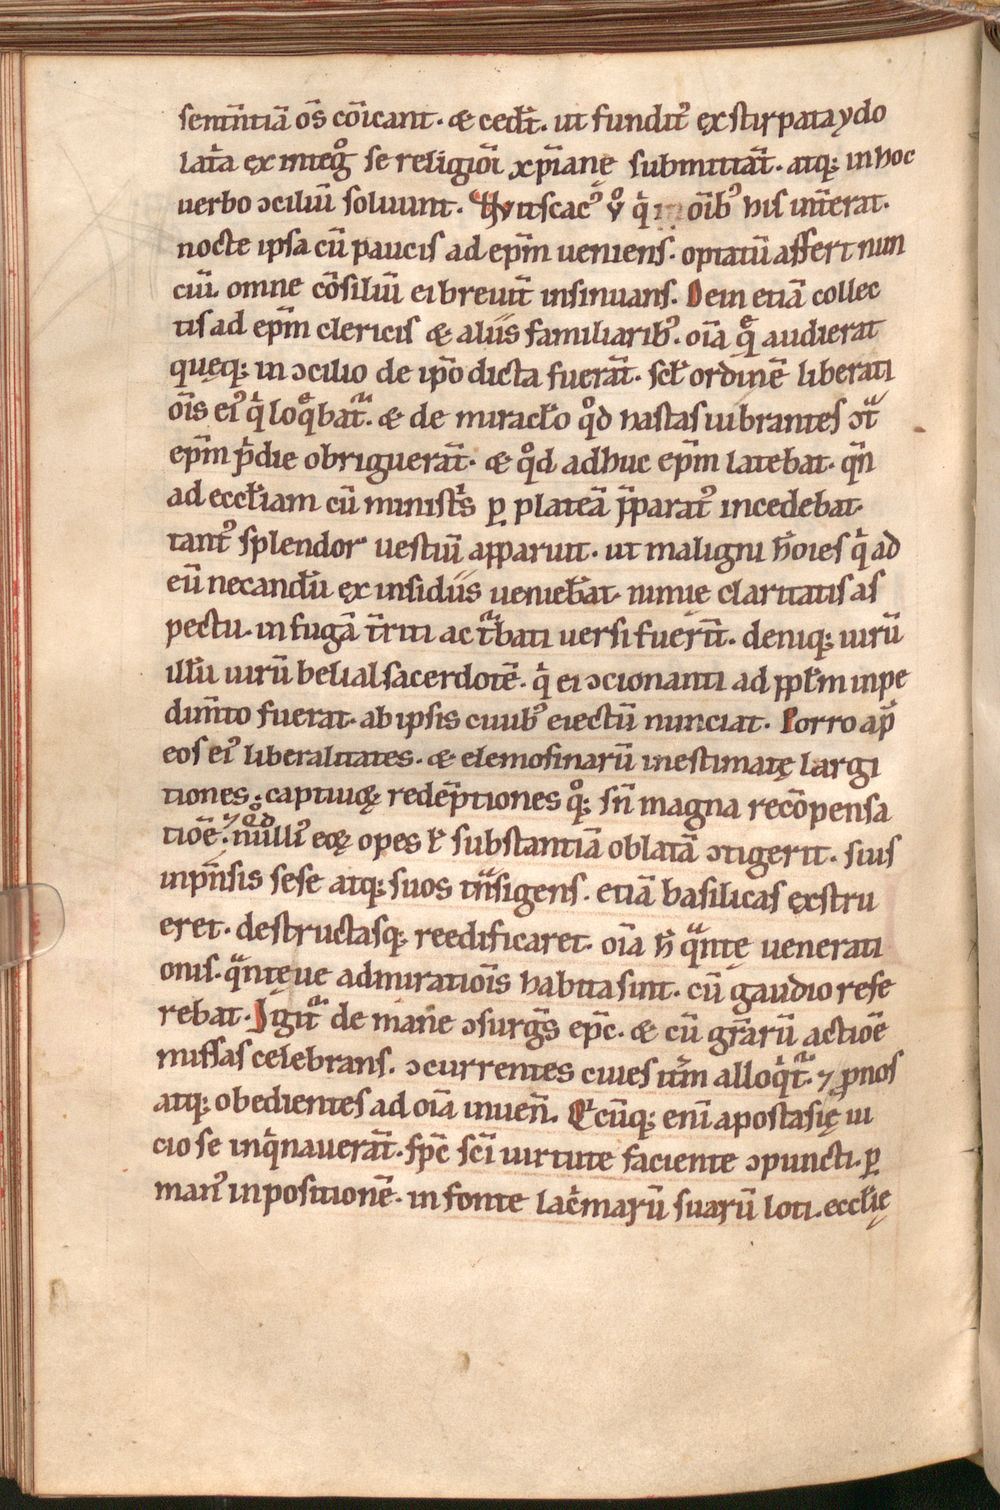 sentn̄tiā oīs cōicant. & cedr̄t. ut fundit᷒ exstirpata ydo
latr̄a ex integͦ se religiōi xp̄iane submittāt. atq; in hoc
uerbo ↄciliū soluunt. Wituscac᷒ ṽ qͥ in oīb᷒ his int̄erat.
nocte ipsa cū paucis ad ep̄m ueniens. optatū affert nun
cíu. omne cōsiliū ei breuit̄ insinuans. Dein etiā collec
tis ad ep̄m clericis & aliis familiarib᷒. oīa q̄ audierat
quęq; in ↄcilio de ip̄o dicta fuerāt. scł ordinē liberati
oīs ei᷒ qͥ loqͤbatᷓ. & de miracło qͦd hastas uibrantes ↄtᷓ
ep̄m p̄die obriguerāt. & qͦd adhuc ep̄m latebat. qn̄
ad eccłiam cū ministͥs ꝑ plateā p̄parat᷒ incedebat.
tant᷒ splendor uestiū apparuit. ut maligni h̄oies qͥ ad
eū necandū ex insidiis uenieb̄at. nimię claritatis as
pectu. in fugā t̄riti ac tᷓbati uersi fuer̄t. deniq; uirū
illū uirū belial sacerdotē. qͥ ei ↄcionanti ad ppłm inpe
dim̄to fuerat. ab ipsis ciuib᷒ eiectū nunciat. Porro ap̄
eos ei᷒ liberalitates. & elemosinarū inestimatę largi
tiones. captiuoꝝ redēptiones qͦ; sn̄ magna recōpensa
tiōe. ⁊ qͦd null᷒ eoꝝ opes ł substantiā oblatā ↄtigerit. si ius
inpn̄sis sese atq; suos tᷓnsigens. etiā basilicas exstru
eret. destructasq; reedificaret. oīa h̄ qᷓntę uenerati
onis. qᷓntęue admiratiōis habita sint. cū gaudio refe
rebat. Igitᷓ de mane ↄsurgēs ep̄c. & cū gr̄arū actiōe
missas celebrans. ↄcurrentes ciues it̄m alloqͥtᷓ. ⁊ ꝓnos
atq; obedientes ad oīa inuen̄. Qͥcūq; enī apostasię ui
cio se inqͥnauerāt. sp̄c sc̄i uirtute faciente ↄpuncti. ꝑ
man᷒ inpositionē. in fonte lacͥmarū suarū loti. eccłię